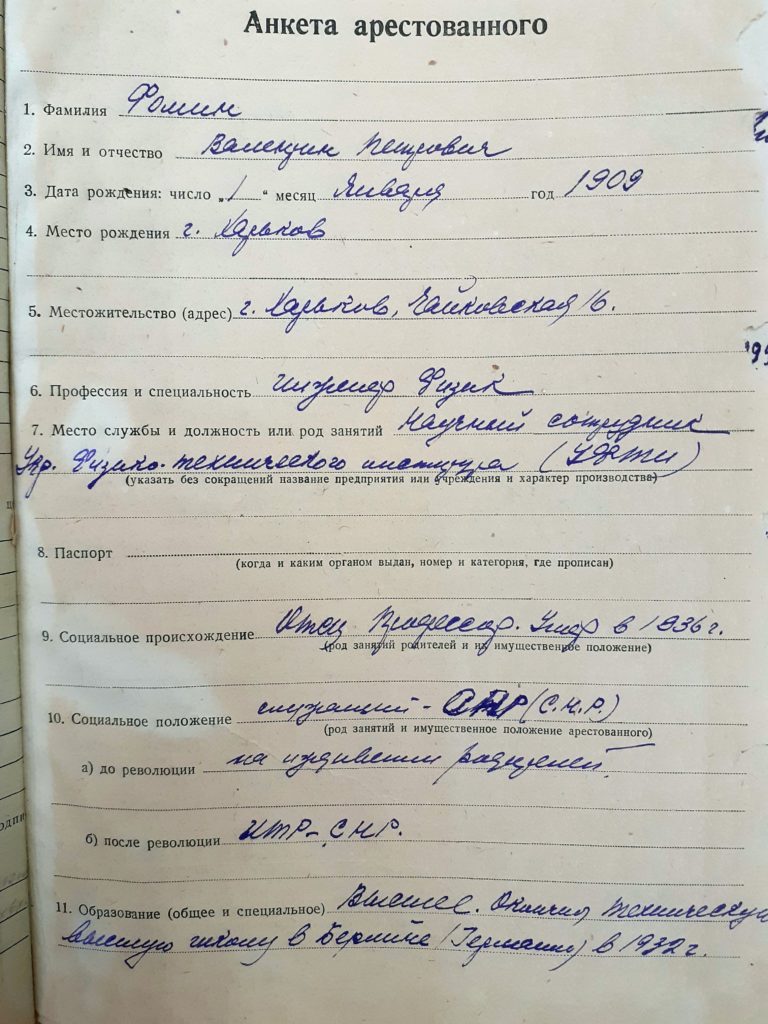 Анкета арестованного
1. Фамилия Фомин
2. Имя и отчество Валентин Петрович
3. Дата рождения: число „1“ месяц Января год 1909
4. Место рождения г. Харьков
5. Местожительство (адрес) г. Харьков, Чайковская 16.
6. Профессия и специальность инженер Физик
7. Место службы и должность или род занятий Научный сотрудник
Укр. Физико-технического института (УФТИ)
(указать без сокращений название предприятия или учреждения и характер производства)
8. Паспорт
(когда и каким органом выдан, номер и категория, где прописан)
9. Социальное происхождение Отец Профессор. Умер в 1936 г.
(род занятий родителей и их имущественное положение)
10. Социальное положение служащий - (С.Н.Р.)
(род занятий и имущественное положение арестованного)
а) до революции на иждивении родителей
б) после революции ИТР - С.Н.Р.
11. Образование (общее и специальное) Высшее. Окончил техническую
высшую школу в Берлине (Германия) в 1932 г.